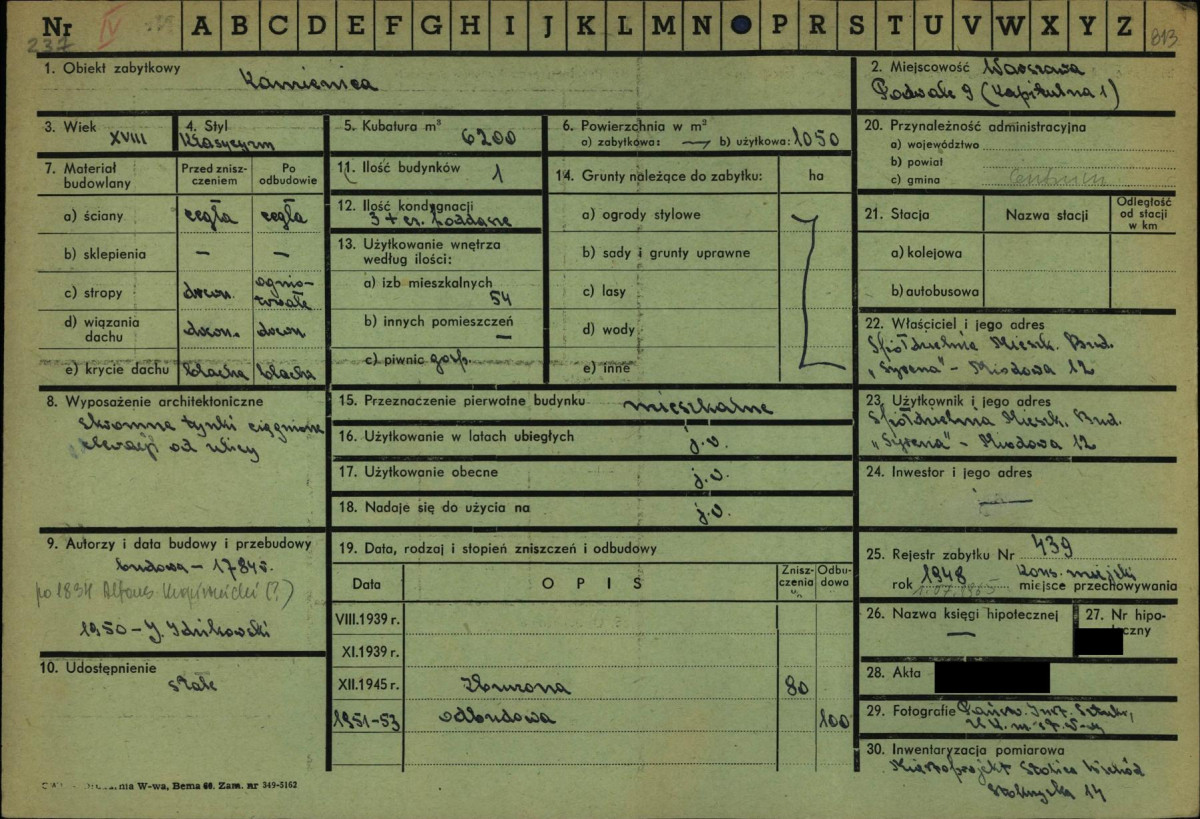 Nr IV A B C D E F G H I J K L M N P R S T U V W X Y Z 813
237
1. Obiekt zabytkowy Kamienica
2. Miejscowość Warszawa
Podwale 9 (Kapitulna 1)
3. Wiek XVIII
4. Styl Klasycyzm
5. Kubatura m³ 6200
6. Powierzchnia w m²
a) zabytkowa: — b) użytkowa: 1050
7. Materiał budowlany
Przed zniszczeniem
Po odbudowie
a) ściany cegła cegła
b) sklepienia — —
c) stropy drewn. ognio-
trwałe
d) wiązania dachu drewn. drewn
e) krycie dachu blacha blacha
8. Wyposażenie architektoniczne
Skromne tynki ciągnione
elewacji od ulicy
9. Autorzy i data budowy i przebudowy
budowa – 1784r.
po 1834 Alfons Kropiwnicki (?)
1950 – J. Idzikowski
10. Udostępnienie
stałe
11. Ilość budynków 1
12. Ilość kondygnacji
3 + cz. poddasze
13. Użytkowanie wnętrza
według ilości:
a) izb mieszkalnych
54
b) innych pomieszczeń
—
c) piwnic gosp.
14. Grunty należące do zabytku: ha
a) ogrody stylowe
b) sady i grunty uprawne
c) lasy
d) wody
e) inne
15. Przeznaczenie pierwotne budynku mieszkalne
16. Użytkowanie w latach ubiegłych j.w.
17. Użytkowanie obecne j.w.
18. Nadaje się do użycia na j.w.
19. Data, rodzaj i stopień zniszczeń i odbudowy
Data OPIS Zniszczenia % Odbudowa
VIII.1939 r.
XI.1939 r.
XII.1945 r. Zburzona 80
1951-53 odbudowa 100
20. Przynależność administracyjna
a) województwo
b) powiat
c) gmina Centrum
21. Stacja Nazwa stacji Odległość od stacji w km
a) kolejowa
b) autobusowa
22. Właściciel i jego adres
Spółdzielnia Mieszk. Bud.
„Syrena" – Miodowa 12
23. Użytkownik i jego adres
Spółdzielnia Mieszk. Bud.
„Syrena" – Miodowa 12
24. Inwestor i jego adres
25. Rejestr zabytku Nr 439
rok 1948 Kons. miejski
1.07.1965 miejsce przechowywania
26. Nazwa księgi hipotecznej
—
27. Nr hipoteczny
28. Akta
29. Fotografie Państw. Inst. Sztuki,
U.K. m. st. W-wy
30. Inwentaryzacja pomiarowa
Miastoprojekt Stolica Wschód
14
W-wa, Bema 60. Zam. nr 349-5162